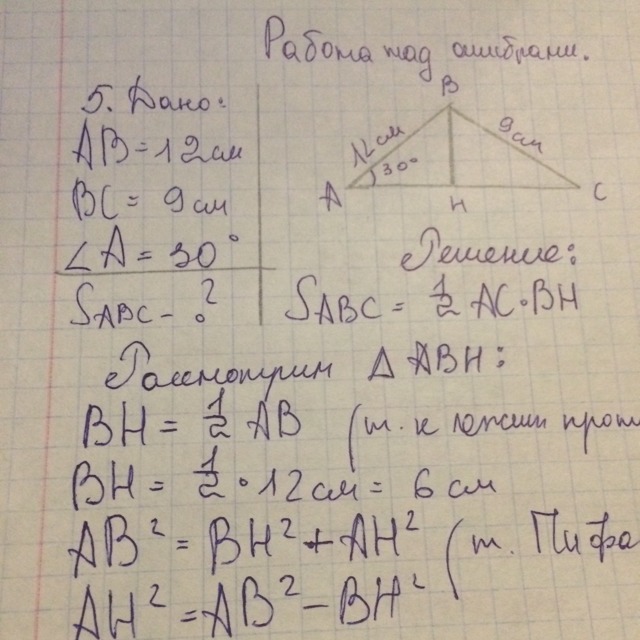 Работа над ошибками.
5. Дано:
AB = 12 см
BC = 9 см
∠A = 30°
S ABC - ?
B
12 см
9 см
30°
A
H
C
Решение:
S ABC = 1/2 AC • BH
Рассмотрим Δ ABH:
BH = 1/2 AB (т. к лежит прот
BH = 1/2 • 12 см = 6 см
AB² = BH² + AH² (т. Пифа
AH² = AB² - BH²